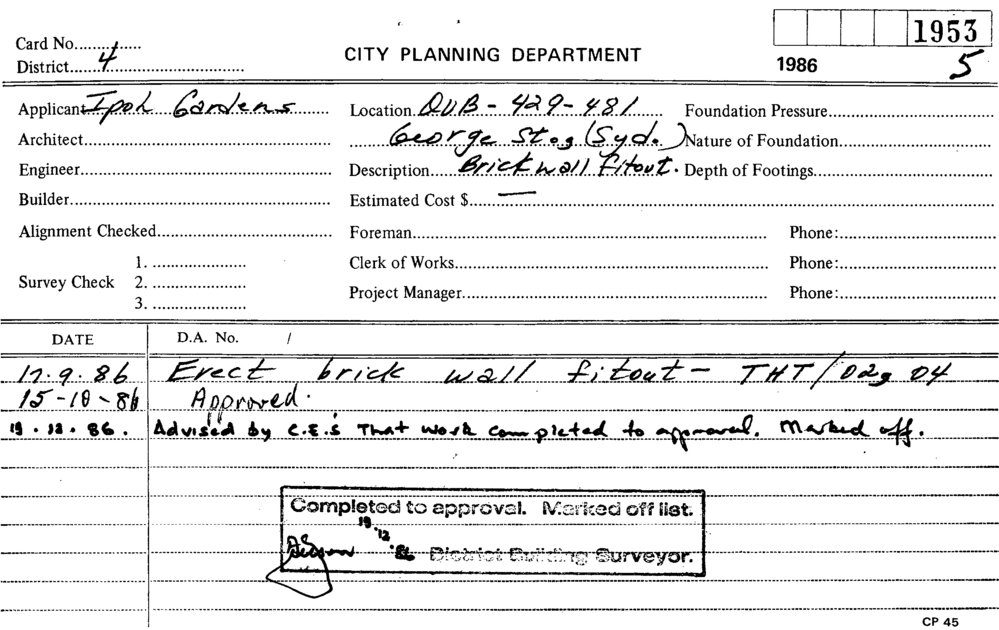 1953
Card No.
CITY PLANNING DEPARTMENT
District 4
1986 5
Applicant Ipoh Gardens Location QUB - 429-481 Foundation Pressure
Architect George St., (Syd.) Nature of Foundation
Engineer Description Brick wall fitout. Depth of Footings
Builder Estimated Cost $ —
Alignment Checked Foreman Phone:
1. Clerk of Works Phone:
Survey Check 2.
3. Project Manager Phone:
DATE D.A. No. /
17.9.86 Erect brick wall fitout - THT/ 04
15-10-86 Approved.
19.12.86. Advised by C.E.'s That work completed to approval. Marked off.
Completed to approval. Marked off list.
19.12.86 District Building Surveyor.
CP 45